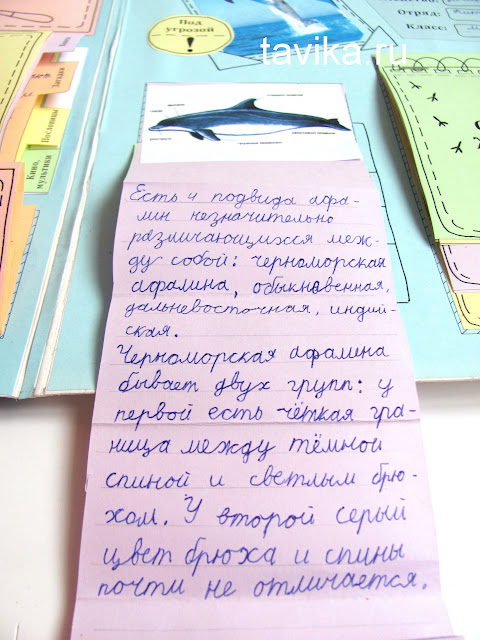 Под
угрозой
!
tavika.ru
Отряд:
Класс:
Загадки
Пословицы
Кино,
мультики
Есть 4 подвида афа-
лин незначительно
различающихся меж-
ду собой: черноморская
афалина, обыкновенная,
дальневосточная, индий-
ская.
Черноморская афалина
бывает двух групп: у
первой есть чёткая гра-
ница между тёмной
спиной и светлым брю-
хом. У второй серый
цвет брюха и спины
почти не отличается.